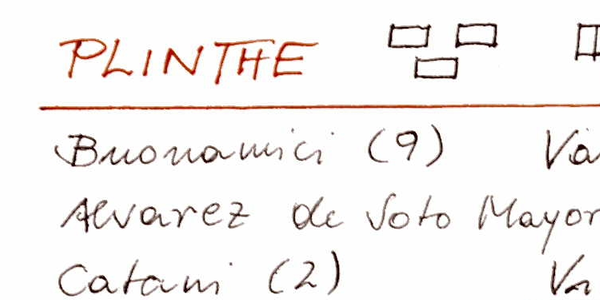 PLINTHE
Buonamici (9)
Alvarez de Soto Mayor
Catani (2)